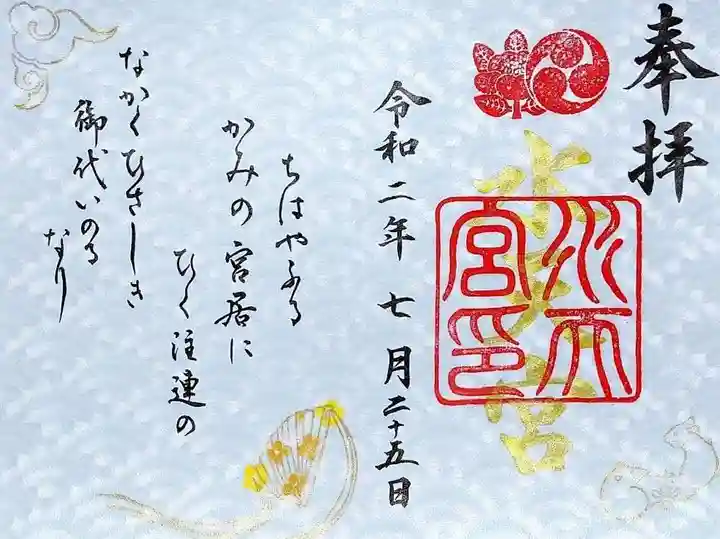 奉拝
水天宮
水天宮印
令和二年 七月二十五日
ちはやふる
かみの宮居に
ひく注連の
なかくひさしき
御代いのる
なり